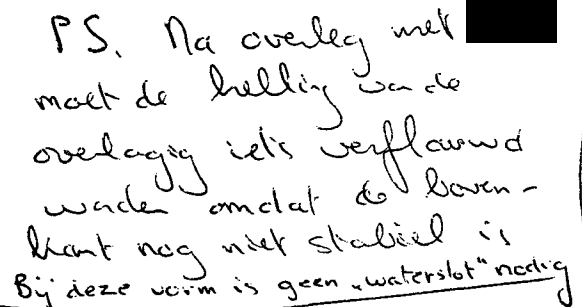 PS. Na overleg met
moet de helling van de
overlaging iets verflauwd
worden omdat de boven-
kant nog niet stabiel is
Bij deze vorm is geen „waterslot" nodig